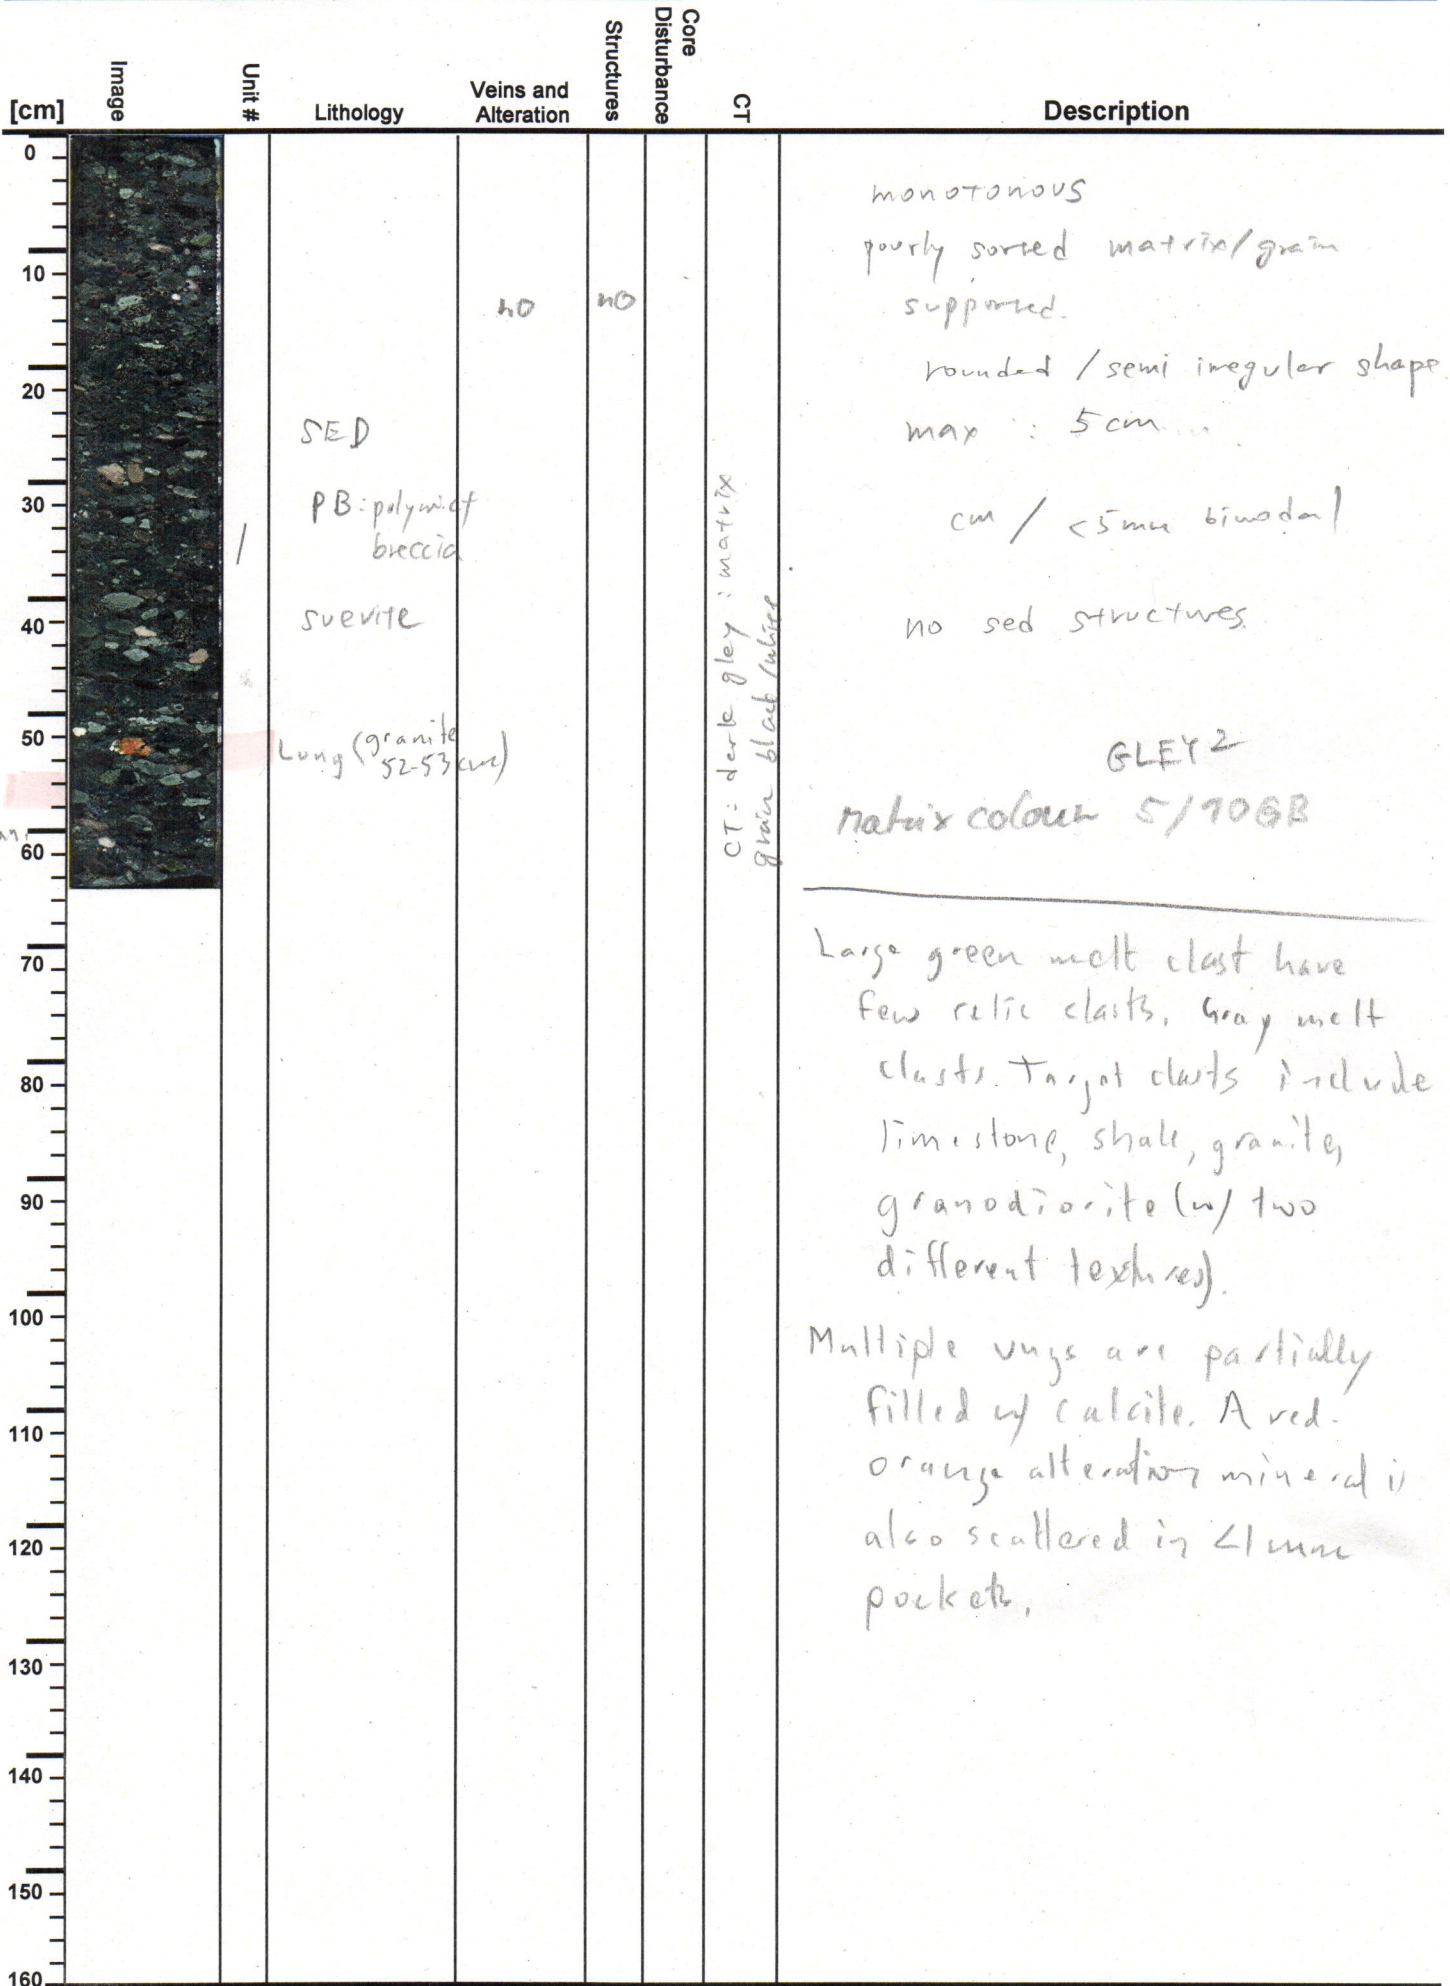 [cm]
Image
Unit #
Lithology
Veins and
Alteration
Structures
Core
Disturbance
CT
Description
0
10
20
30
40
50
60
70
80
90
100
110
120
130
140
150
160
SED
PB: polymict
breccia
suevite
(granite
52-53 cm)
/
no
no
CT: dark gley : matrix
grain black/white
monotonous
pourly sorted matrix/grain
supported.
rounded / semi irregular shape
max : 5 cm
cm / <5mm bimodal
no sed structures.
GLEY 2
matrix colour 5/10GB
Large green melt clast have
few relic clasts. Gray melt
clasts. Target clasts include
limestone, shale, granite,
granodiorite (w/ two
different textures).
Multiple vugs are partially
filled w/ calcite. A red-
orange alteration mineral is
also scattered in <1 mm
pockets.